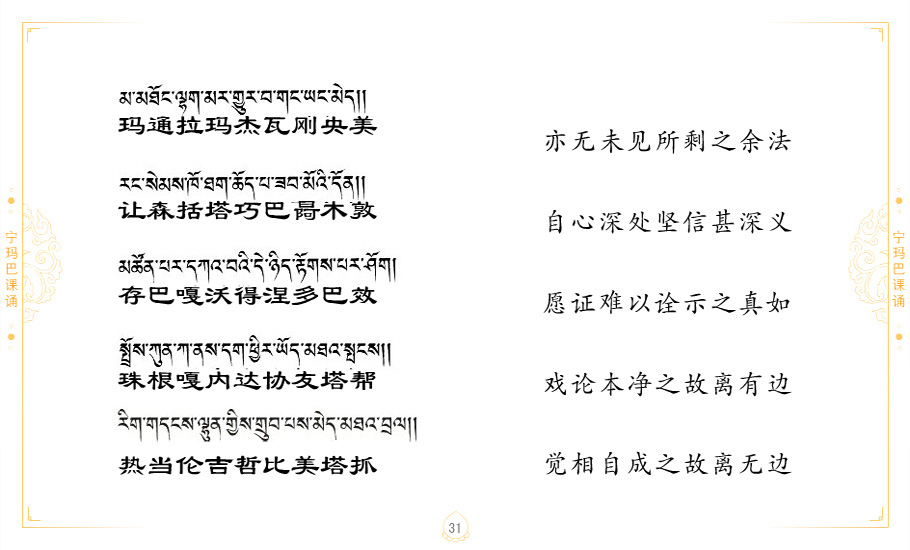 མ་མཐོང་ལྷག་མར་གྱུར་བ་གང་ཡང་མེད།།
玛通拉玛杰瓦刚央美
亦无未见所剩之余法
རང་སེམས་ཁོ་ཐག་ཆོད་པ་ཟབ་མོའི་དོན།།
让森括塔巧巴噶木敦
自心深处坚信甚深义
མཚོན་པར་དཀའ་བའི་དེ་ཉིད་རྟོགས་པར་ཤོག།
存巴嘎沃得涅多巴效
愿证难以诠示之真如
སྤྲོས་ཀུན་ཀ་ནས་དག་ཕྱིར་ཡོད་མཐའ་སྤངས།།
珠根嘎内达协友塔帮
戏论本净之故离有边
རིག་གདངས་ལྷུན་གྱིས་གྲུབ་པས་མེད་མཐའ་བྲལ།།
热当伦吉哲比美塔抓
觉相自成之故离无边
宁玛巴课诵
宁玛巴课诵
31